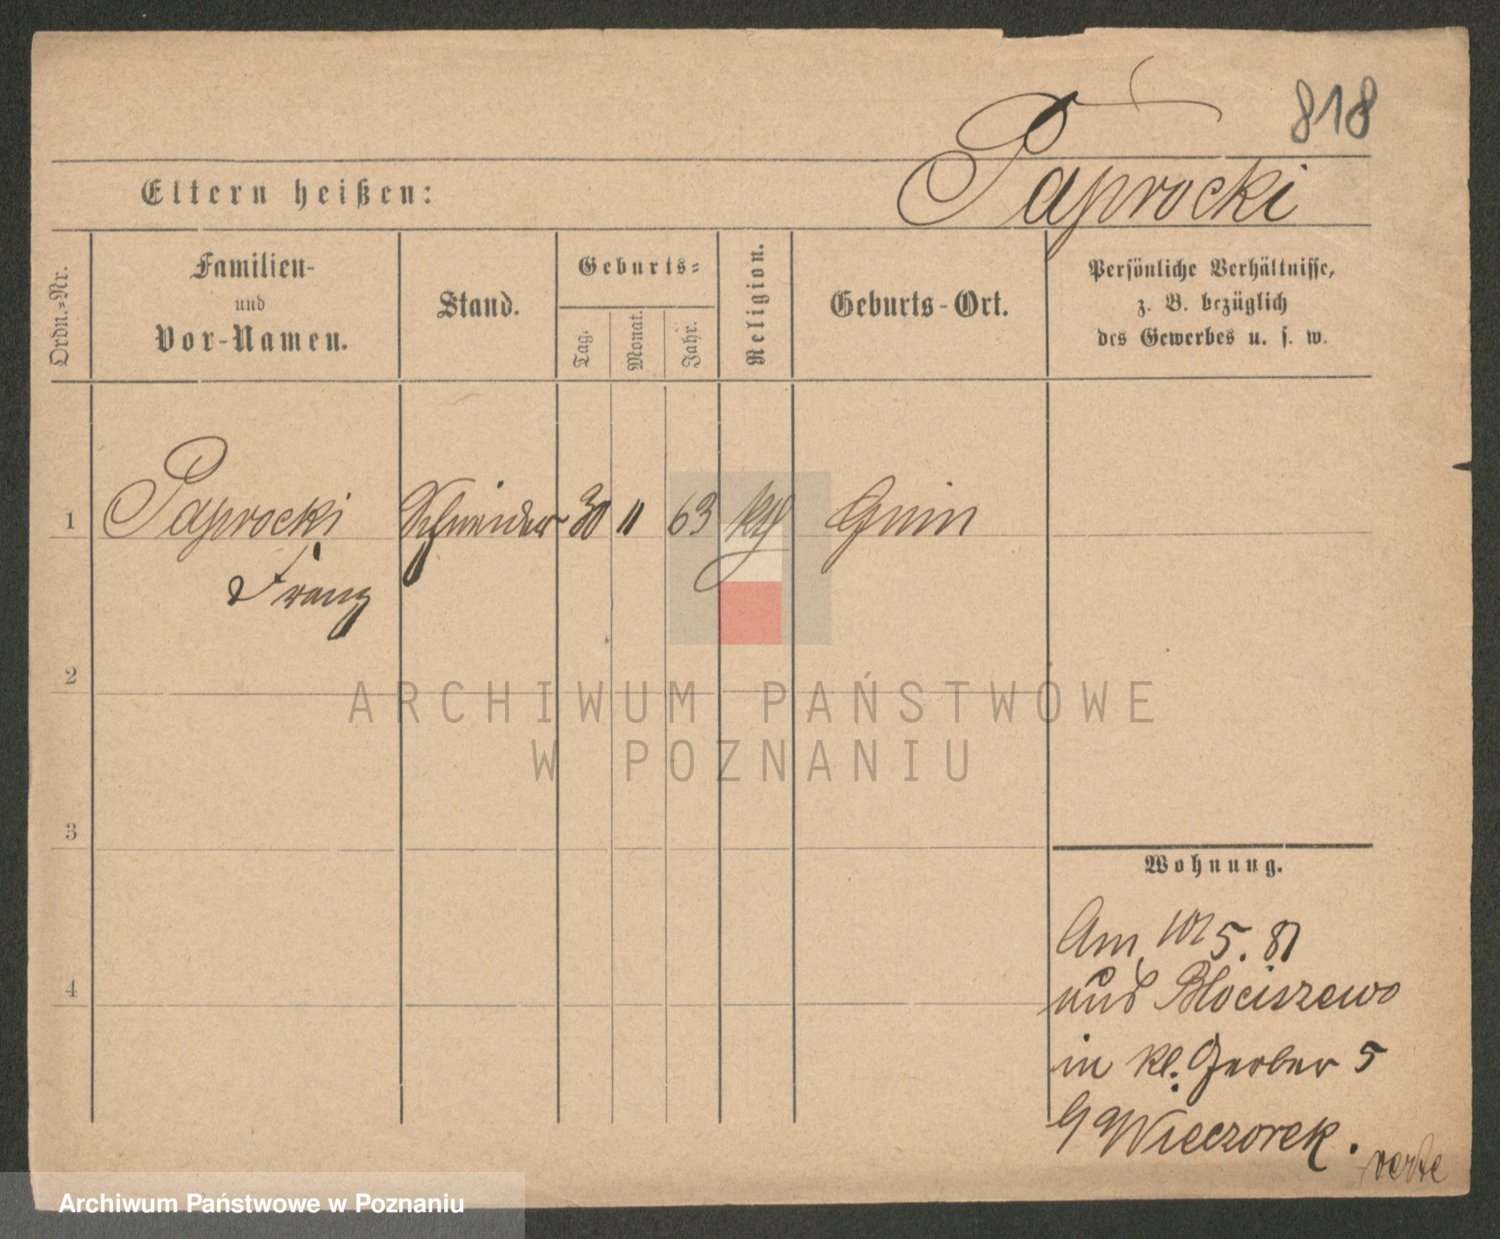 818
Paprocki
Eltern heißen:
Ordn.-Nr.
Familien-
und
Vor-Namen.
Stand.
Geburts-
Tag.
Monat.
Jahr.
Religion.
Geburts-Ort.
Persönliche Verhältnisse,
z. B. bezüglich
des Gewerbes u. s. w.
1
Paprocki Schneider 30 11 63 kth
Franz
2
ARCHIWUM PAŃSTWOWE
W POZNANIU
3
Wohnung.
Am 5. 81
4
aus Blociszewo
in kl. Gerber 5
Wieczorek.
verte
Archiwum Państwowe w Poznaniu